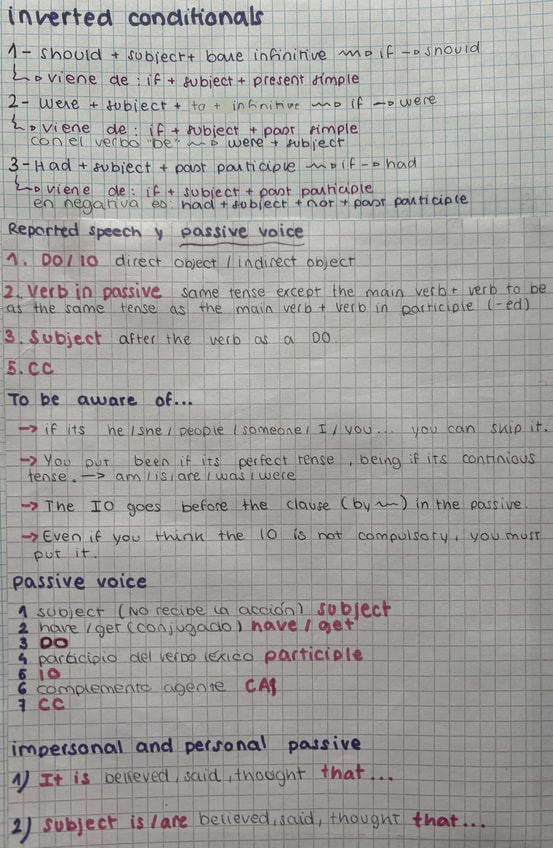 inverted conditionals
1- should + subject + base infinitive ⟿ if → should
↳ viene de: if + subject + present simple
2- were + subject + to + infinitive ⟿ if → were
↳ viene de: if + subject + past simple
con el verbo "be" ⟿ were + subject
3- Had + subject + past participle ⟿ if → had
↳ viene de: if + subject + past participle
en negativa es: had + subject + not + past participle
Reported speech y passive voice
1. DO/IO direct object / indirect object
2. Verb in passive same tense except the main verb + verb to be
as the same tense as the main verb + verb in participle (-ed)
3. Subject after the verb as a DO
5. CC
To be aware of...
→ if its he/she/people/someone/I/you... you can skip it.
→ You put been if its perfect tense, being if its continious
tense. → am/is/are/was/were
→ The IO goes before the clause (by ~) in the passive.
→ Even if you think the IO is not compulsory, you must
put it.
passive voice
1 subject (NO recibe la acción) subject
2 have/get (conjugado) have/get
3 DO
4 participio del verbo léxico participle
5 IO
6 complemento agente CAg
7 CC
impersonal and personal passive
1) It is believed, said, thought that...
2) subject is/are believed, said, thought that...